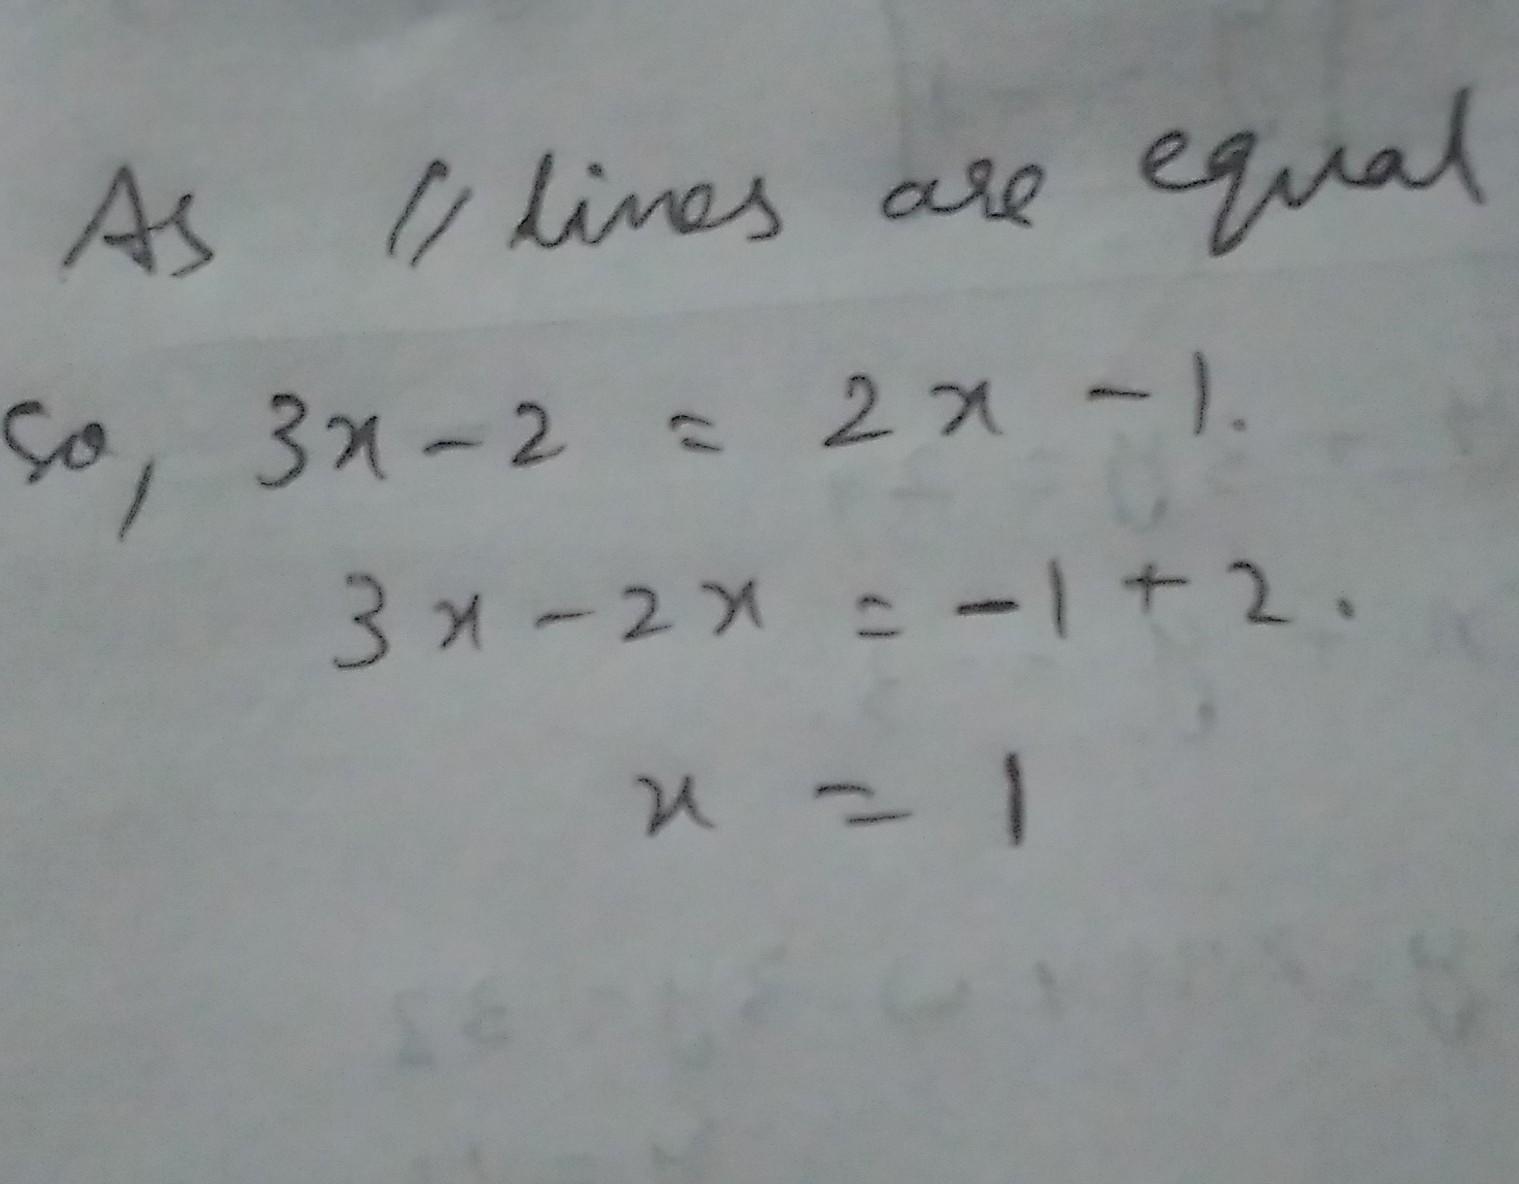 As // lines are equal
So, 3x - 2 = 2x - 1.
3x - 2x = -1 + 2.
x = 1